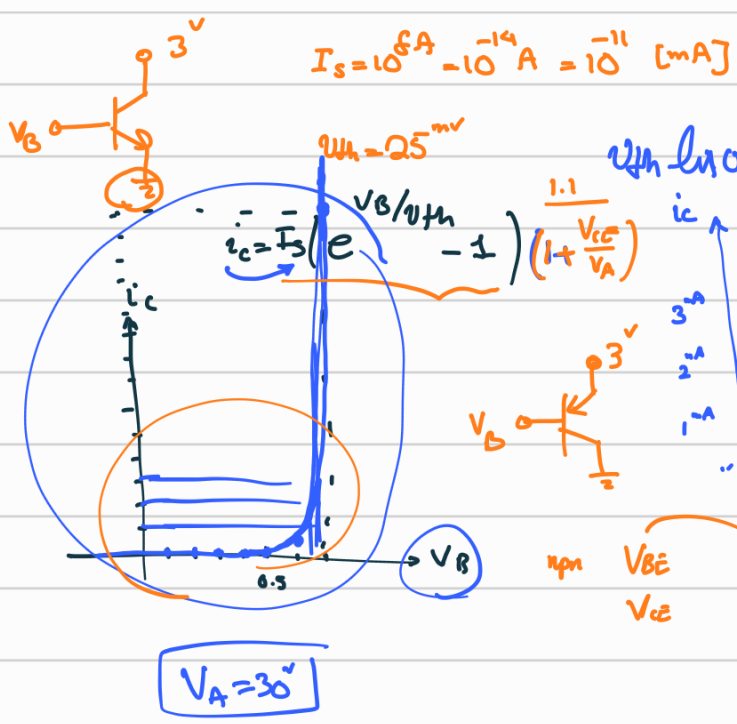 3 V
V_B
I_s = 10 fA = 10^-14 A = 10^-11 [mA]
V_th = 25 mV
V_th ln
i_c = I_s (e^{V_B/V_th} - 1) (1 + V_CE/V_A)
1.1
i_c
i_c
3 mA
2 mA
1 mA
3 V
V_B
0.5
V_B
npn V_BE
V_CE
V_A = 30 V